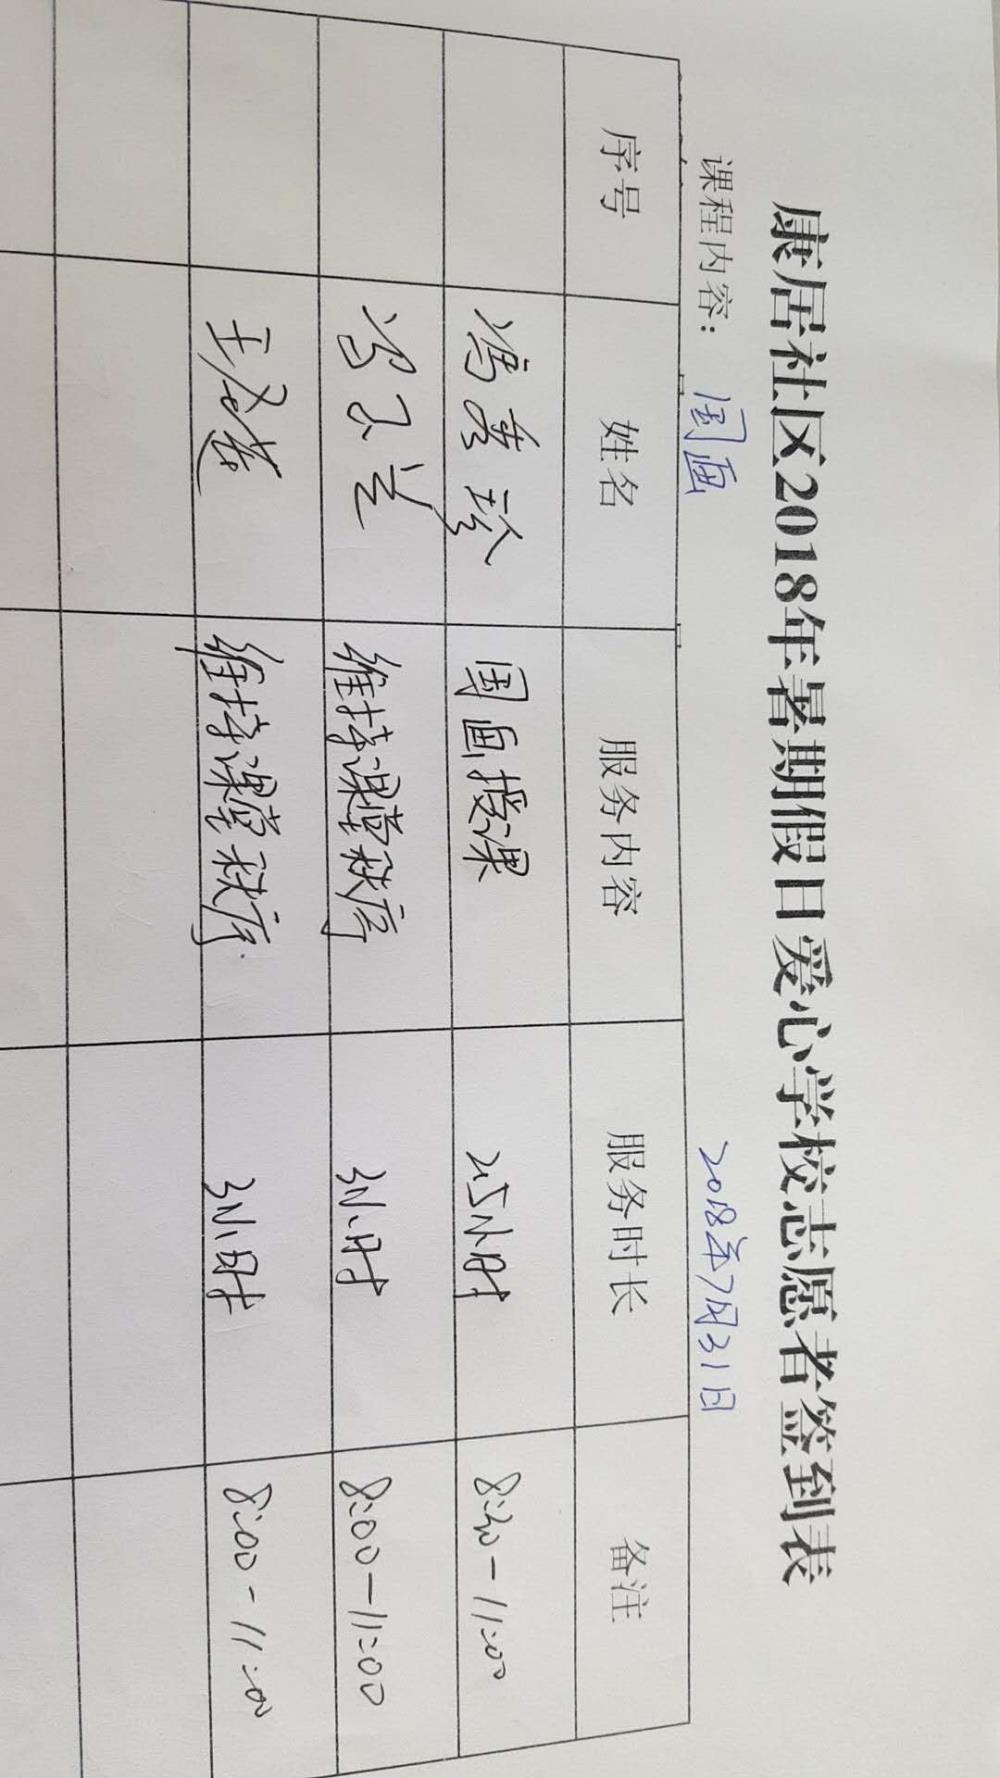 康居社区2018年暑期假日爱心学校志愿者签到表
课程内容：国画 2018年7月31日
序号 姓名 服务内容 服务时长 备注
冯秀珍 国画授课 2.5小时 8:30-11:00
维持课堂秩序 3小时 8:00-11:00
维持课堂秩序 3小时 8:00-11:00